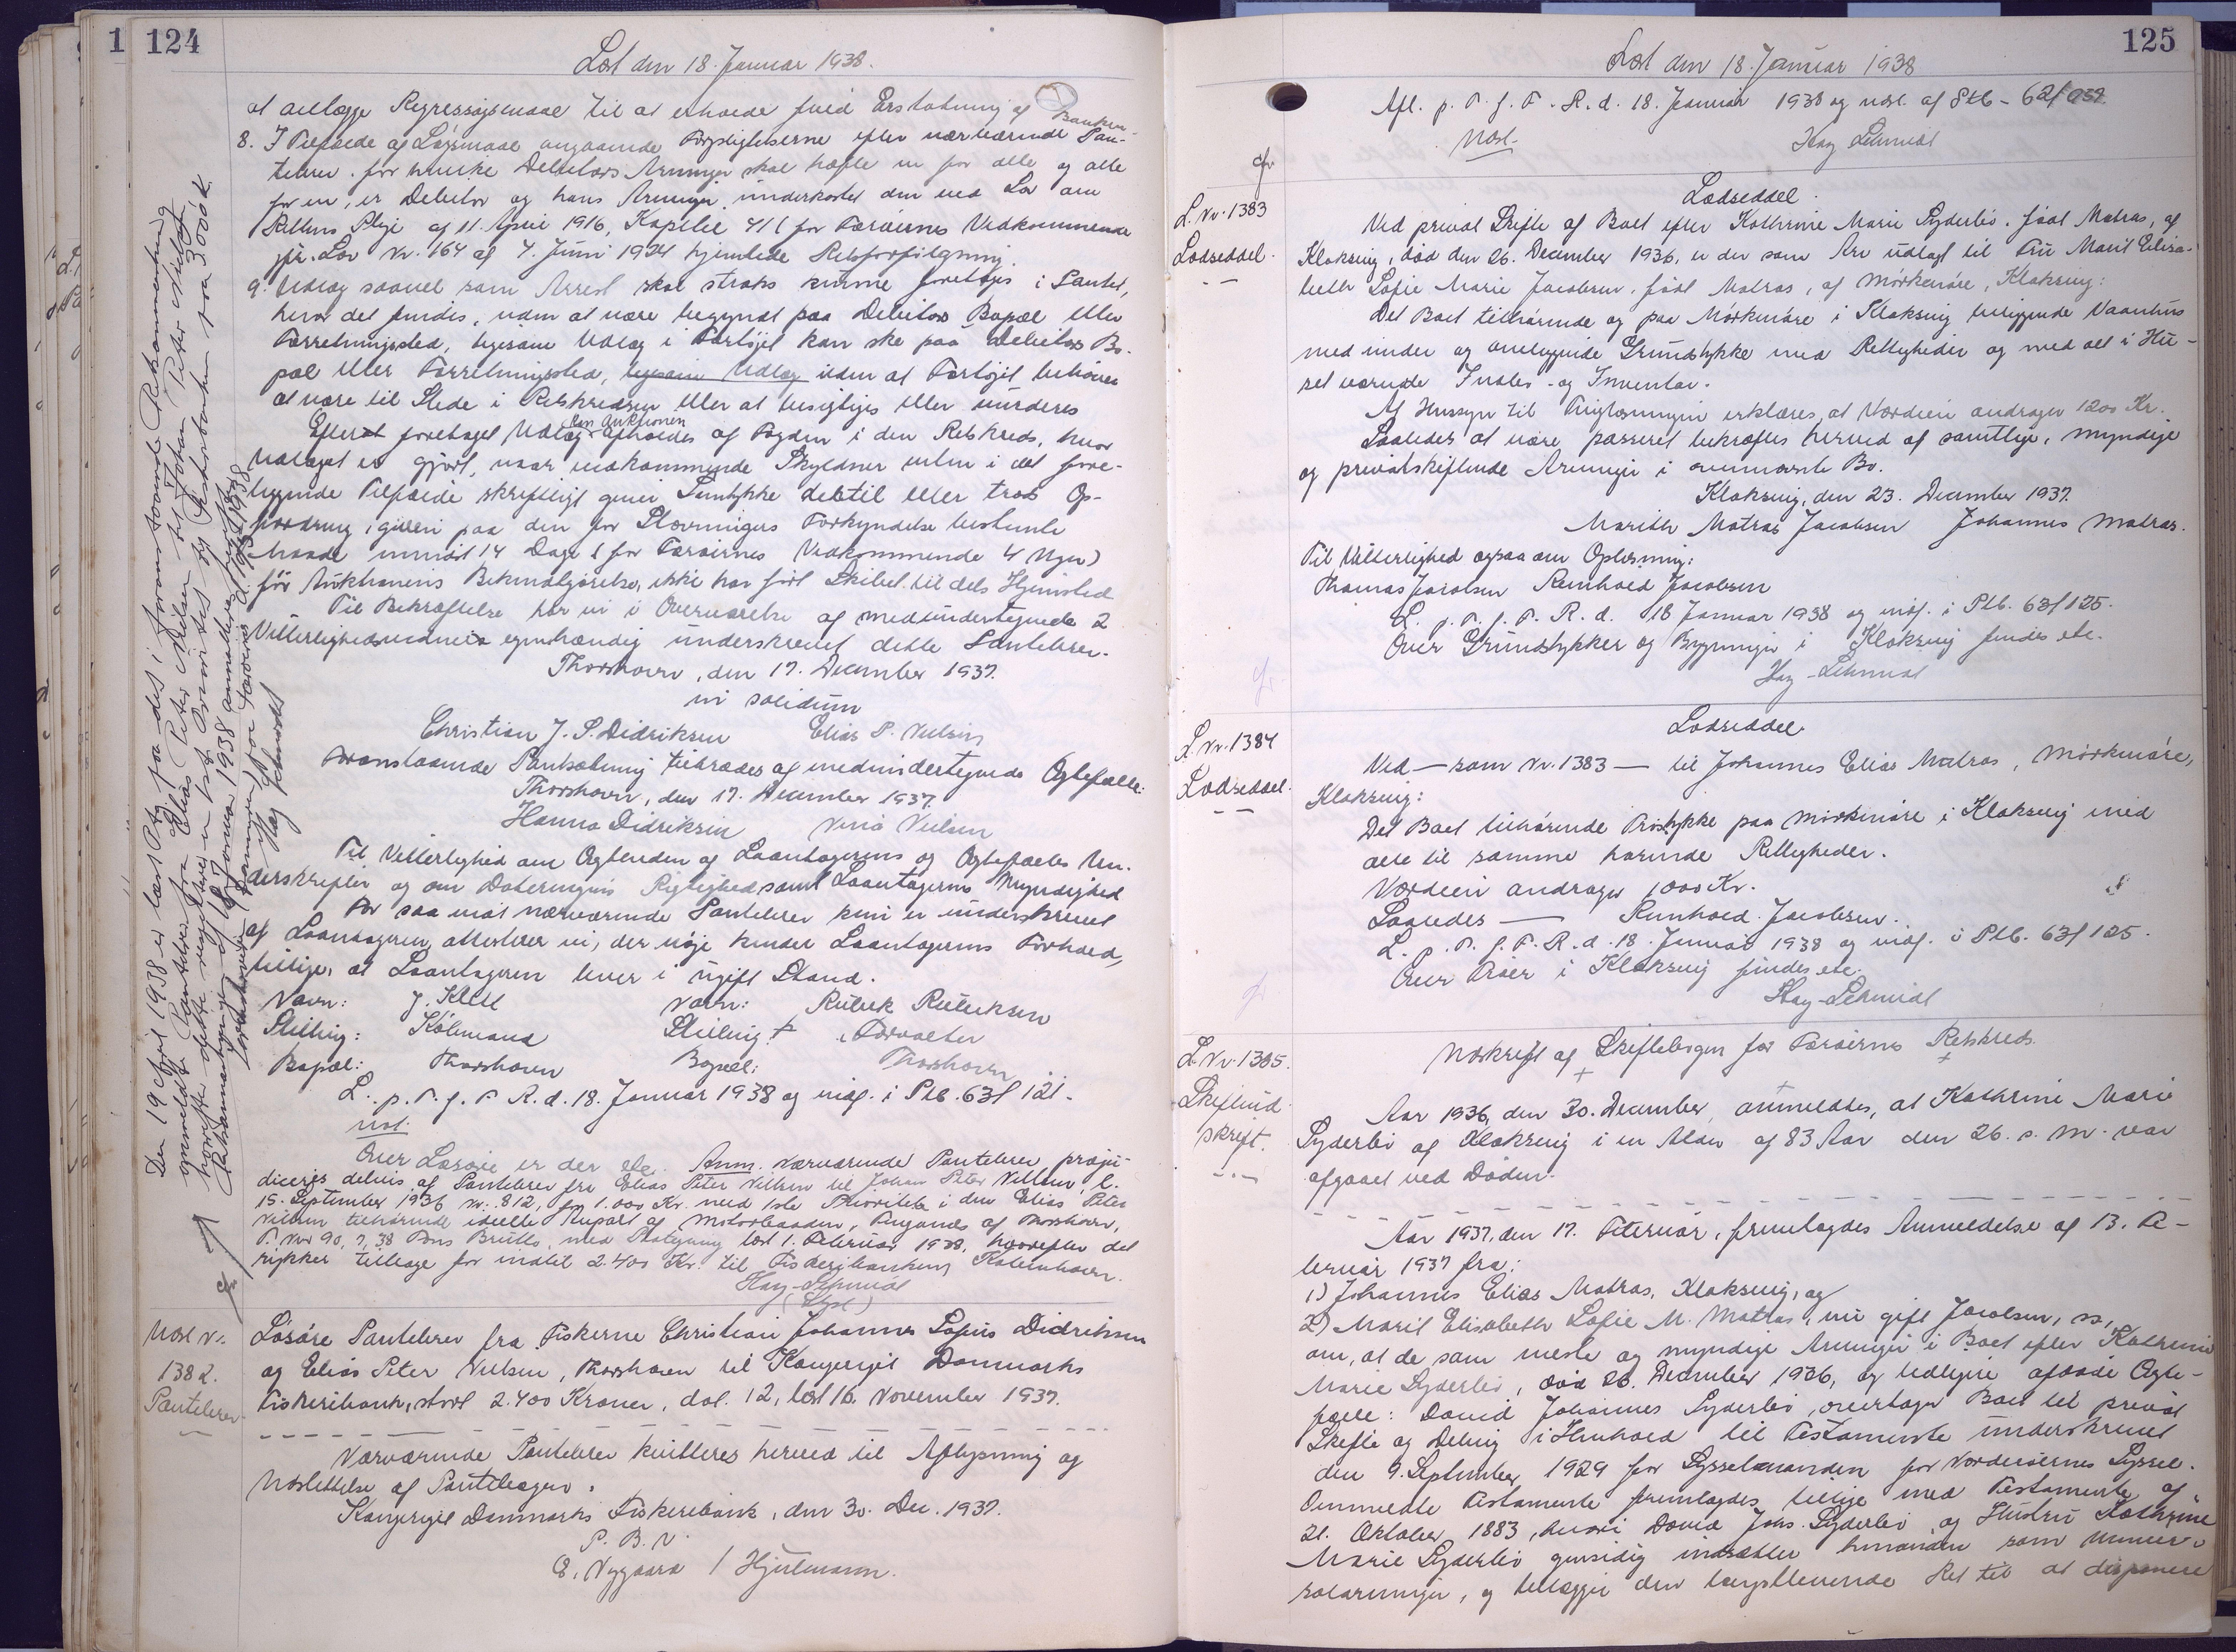 124
Læst den 18. Januar 1938.
at anlægge Regressøgsmaal til at erholde fuld Erstatning af Banken.
8. I Tilfælde af Løgsmaal angaaende Forpligtelserne efter nærværende Pan-
tebrev. for hvilke Debitors Arvinger skal hæfte en for alle og alle
for en, er Debitor og hans Arvinger underkastet den ved Lov om
Rettens Pleje af 11. April 1916, Kapitel 41 (for Færøernes Vedkommende
jfr. Lov Nr. 164 af 4. Juni 1924 hjemlede Retsforfølgning.
9. Udlæg saavel som Arrest skal straks kunne foretages i Pantet,
hvor det findes, uden at være begyndt paa Debitors Bopæl eller
Forretningssted, ligesom Udlæg i Fartøjet kan ske paa Debitors Bo-
pæl eller Forretningssted, ligesom Udlæg uden at Fartøjet behøver
at være til Stede i Retskredsen eller at besigtiges eller vurderes
Efter at foretaget Udlæg kan Auktionen afholdes af Fogden i den Retskreds, hvor
Udlæget er gjort, naar vedkommende Skyldner enten i det fore-
liggende Tilfælde skriftligt giver Samtykke dertil eller trods Op-
fordring, given paa den for Stævningers Forkyndelse bestemte
Maade mindst 14 Dage (for Færøernes Vedkommende 4 Uger)
før Auktionens Bekendtgørelse, ikke har ført Skibet til dets Hjemsted
Til Bekræftelse har vi i Overværelse af medundertegnede 2
Vitterlighedsvidner egenhændig underskrevet dette Pantebrev.
Thorshavn, den 17. December 1937.
in solidum
Christian J. S. Didriksen Elias P. Nielsen
Foranstaaende Pantsætning tiltrædes af medundertegnede Ægtefælle:
Thorshavn, den 17. December 1937.
Hanna Didriksen Nielsen
Til Vitterlighed om Ægtheden af Laantagerens og Ægtefælles Un-
derskrifter og om Dateringens Rigtighed samt Laantagerens Myndighed
For saa vidt nærværende Pantebrev kun er underskrevet
af Laantageren, attesterer vi, der nøje kender Laantagerens Forhold,
tillige, at Laantageren lever i ugift Stand.
Navn: Navn:
Stilling: Købmand Stilling:
Bopæl: Thorshavn Bopæl: Thorshavn
L. p. T. f. F. R. d. 18. Januar 1938 og indf. i Ptb. 63f 121.
Udst.
Over Løsøre er der etc. Anm. Nærværende Pantebrev præju-
diceres delvis af Pantebrev fra Elias Peter Nielsen til Johan Peter Nielsen, l.
15. September 1936 Nr. 812, for 1.000 Kr. med 1ste Prioritet i den Elias Peter
Nielsen tilhørende ideelle Anpart af Motorbaaden, af Thorshavn,
38 Tons Brutto, med læst 1. Februar 1938, hvorefter det
rykker tilbage for indtil 2.400 Kr. til Fiskeribanken København.
Hag-Schmidt
Udsl. Nr.
1382.
Pantebrev
Løsøre Pantebrev fra Fiskerne Christian Johannes Sofus Didriksen
og Elias Peter Nielsen, Thorshavn til Kongeriget Danmarks
Fiskeribank, stort 2.400 Kroner, dat. 12, læst 16. November 1937.
Nærværende Pantebrev kvitteres herved til Aflysning og
Udslettelse af Pantebogen.
Kongeriget Danmarks Fiskeribank, den 30. Dec. 1937.
P. B. V.
E. Nygaard / Hjulmann.
Den 19 April 1938 er læst
125
Læst den 18. Januar 1938
Afl. p. T. f. F. R. d. 18. Januar 1938 og udsl. af Ptb - 62f
Udsl. Hag Schmidt
L. Nr. 1383
Lodseddel.
Lodseddel.
Ved privat Skifte af Boet efter Kathrine Marie Lyderbø. født Matras, af
Klaksvig, død den 26. December 1936, er der som Arv udlagt til Fru Marit Elisa-
beth Sofie Marie Jacobsen. født Matras, af Mørkenøre, Klaksvig:
Det Boet tilhørende og paa Mørkenøre i Klaksvig beliggende Vaanhus
med under og omliggende Grundstykke med Rettigheder og med det i Hu-
set værende Indbo- og Inventar.
Af Hensyn til Tinglæsningen erklæres, at Værdien andrager 1200 Kr.
Saaledes at være passeret bekræftes herved af samtlige, myndige
og privatskiftende Arvinger i ovennævnte Bo.
Klaksvig, den 23. December 1937.
Marith Matras Jacobsen Johannes Matras.
Til Vitterlighed ogsaa om Oplæsning:
Thomas Jacobsen Reinhold Jacobsen
L. p. T. f. F. R. d. 18 Januar 1938 og indf. i Ptb. 63f 125.
Over Grundstykker og Bygninger i Klaksvig findes etc.
Hag-Schmidt
L. Nr. 1384
Lodseddel.
Lodseddel.
Ved — som Nr. 1383 — til Johannes Elias Matras, Mørkenøre,
Klaksvig:
Det Boet tilhørende Træstykke paa Mørkenøre i Klaksvig med
alle til samme hørende Rettigheder.
Værdien andrager 1000 Kr.
Saaledes — Reinhold Jacobsen.
L. p. T. f. F. R. d. 18. Januar 1938 og indf. i Ptb. 63f 125.
Over i Klaksvig findes etc.
Hag-Schmidt
L. Nr. 1385.
Skifteud-
skrift.
Udskrift af Skiftebogen for Færøernes Retskreds.
Aar 1936, den 30. December, anmeldtes, at Kathrine Marie
Lyderbø af Klaksvig i en Alder af 83 Aar den 26. s. M. var
afgaaet ved Døden.
Aar 1937, den 17. Februar, fremlagdes Anmeldelse af 13. Fe-
bruar 1937 fra:
1) Johannes Elias Matras, Klaksvig, og
2) Marit Elisabeth Sofie M. Matras, nu gift Jacobsen, ss,
om, at de som næste og myndige Arvinger i Boet efter Kathrine
Marie Lyderbø, død 26. December 1936, og tidligere afdøde Ægte-
fælle: David Johannes Lyderbø, overtager Boet til privat
Skifte og Deling i Henhold til Testamente underskrevet
den 9. September 1929 for Sysselmanden for Norderøernes Syssel.
Ommeldte Testamente fremlagdes tillige med Testamente af
21. Oktober 1883, hvori David Johs. Lyderbø og Hustru Kathrine
Marie Lyderbø gensidig indsætter hinanden som Univer-
salarvinger, og tillægger den længstlevende Ret til at disponere